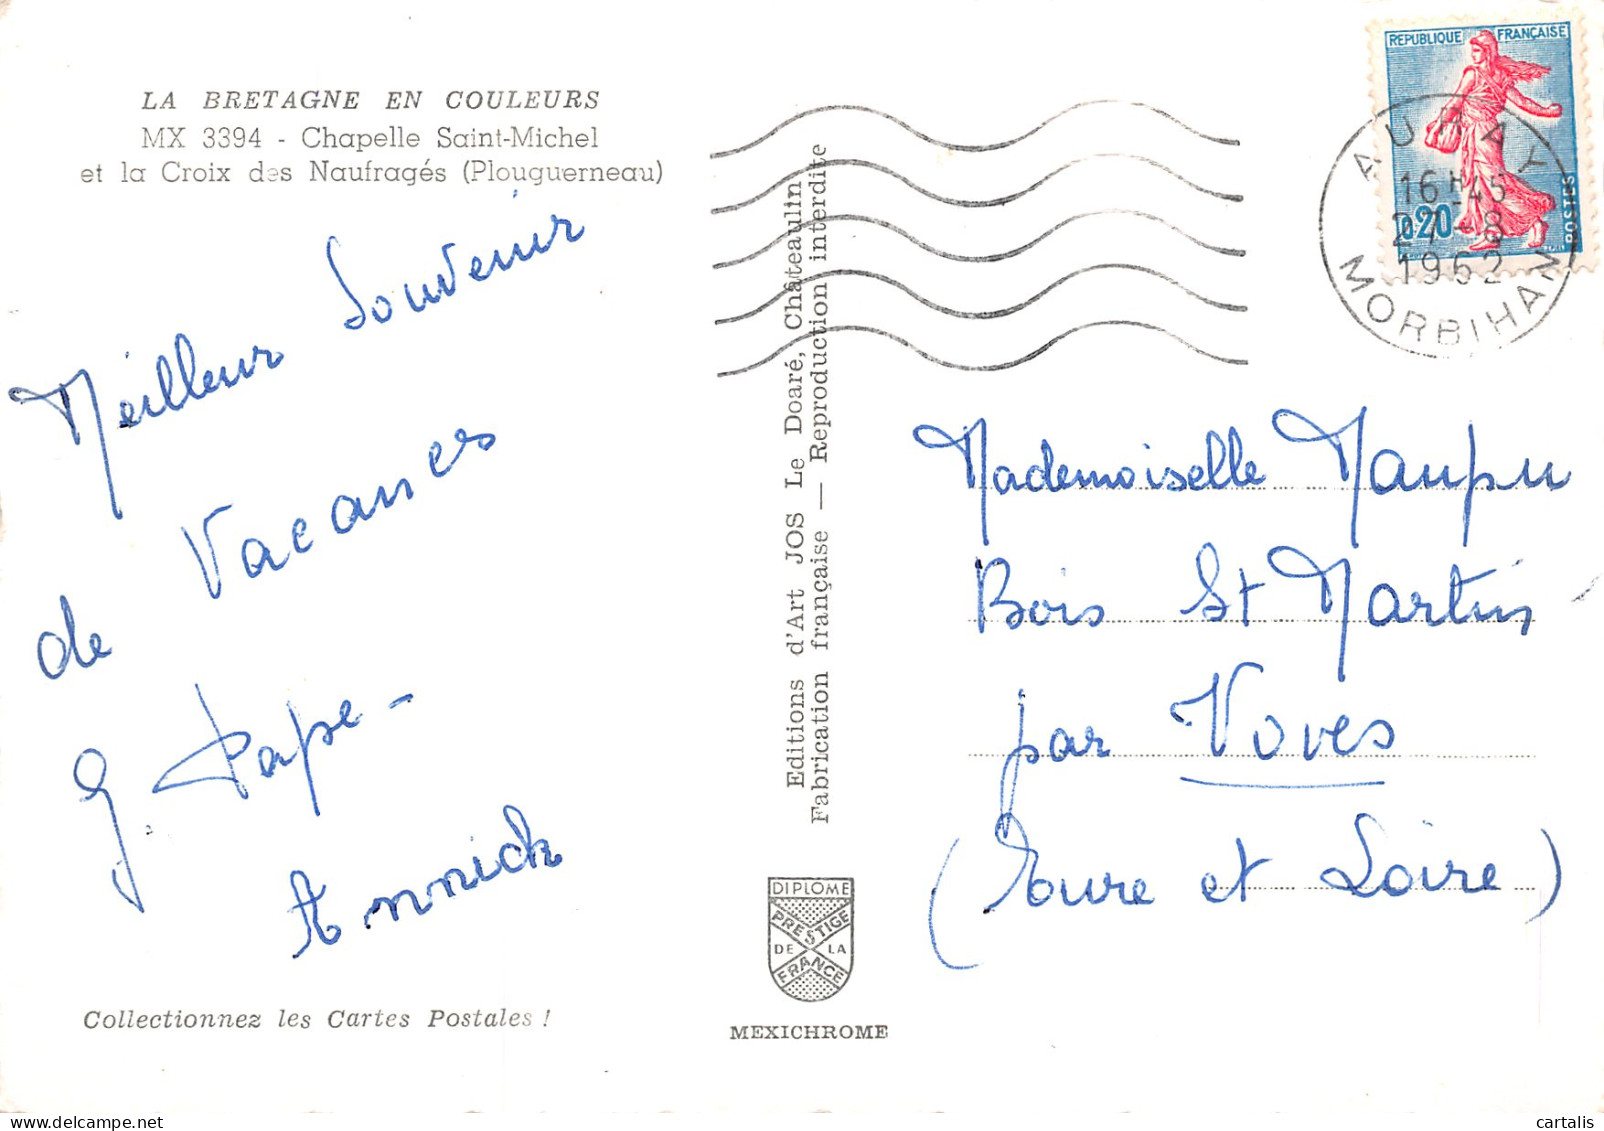 LA BRETAGNE EN COULEURS
MX 3394 - Chapelle Saint-Michel
et la Croix des Naufragés (Plouguerneau)
Meilleur Souvenir
de Vacances
G. Pape -
Annick
Collectionnez les Cartes Postales !
Editions d'Art JOS Le Doaré, Châteaulin
Fabrication française — Reproduction interdite
DIPLOME
PRESTIGE
DE LA
FRANCE
MEXICHROME
REPUBLIQUE FRANÇAISE
0,20
POSTES
AURAY
16H45
27-8
1962
MORBIHAN
Mademoiselle Maupu
Bois St Martin
par Voves
(Eure et Loire)
cartalis